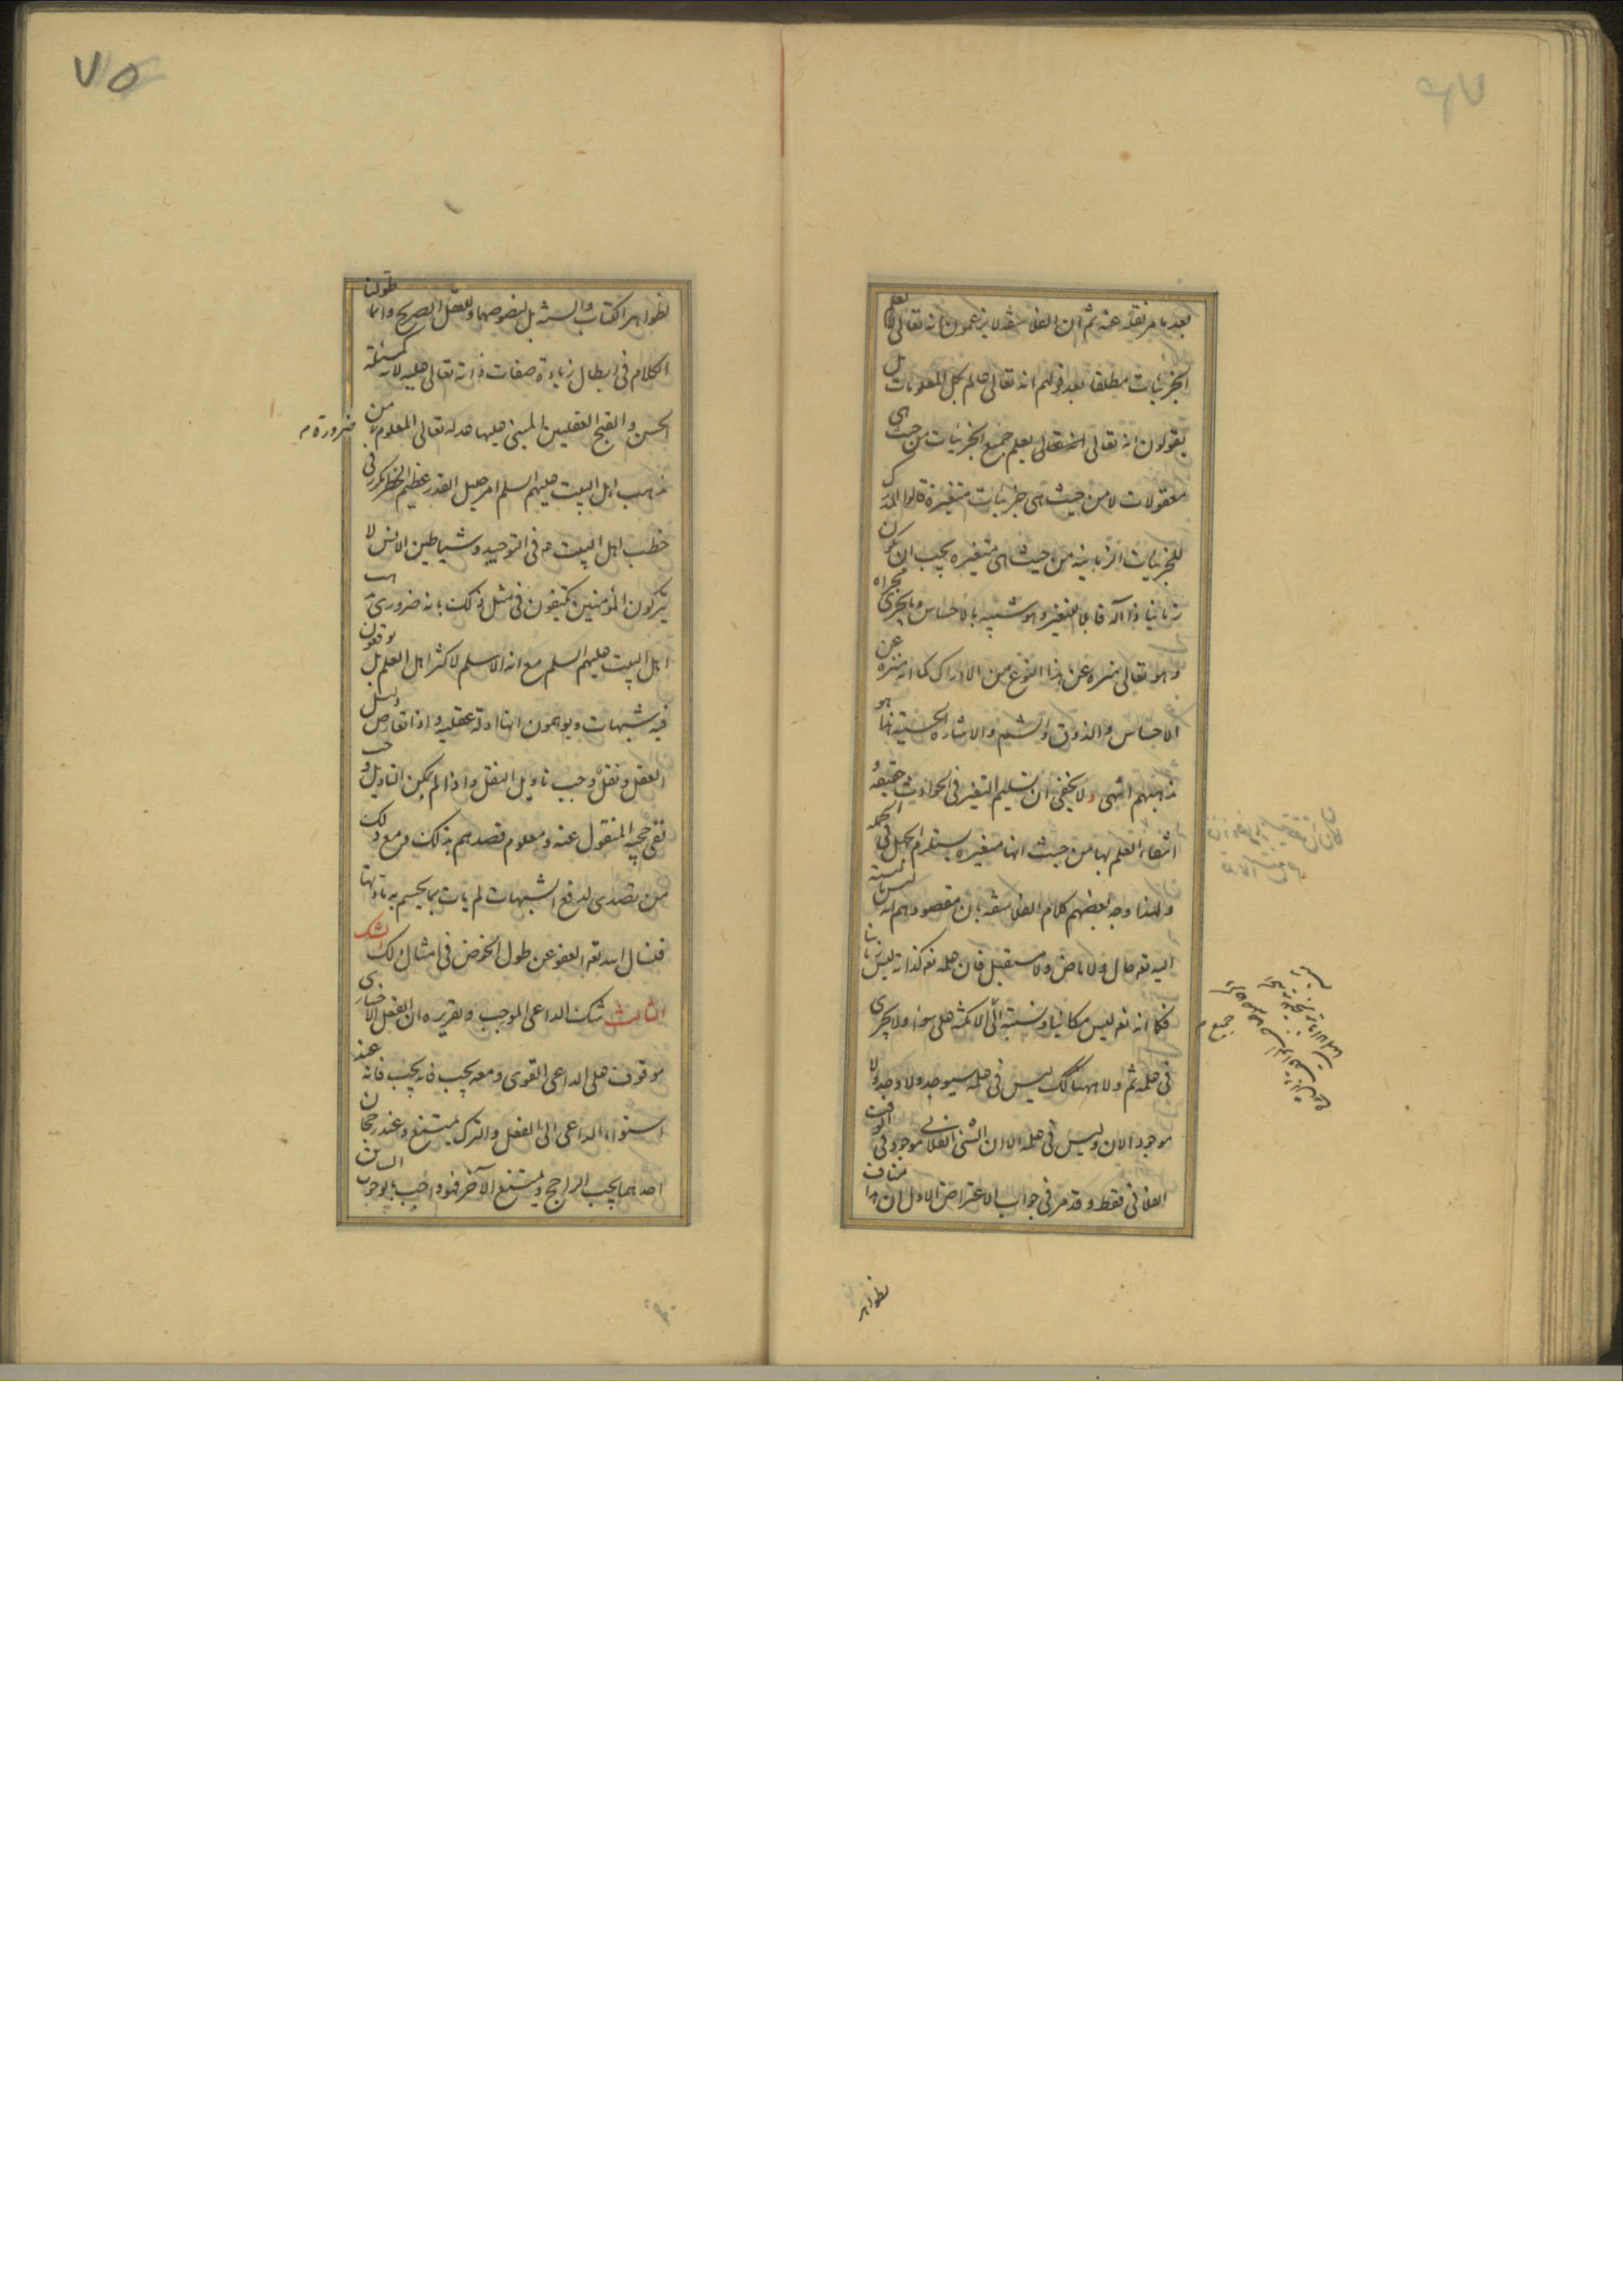 بعد ما مر نقله عنه ثم ان الفلاسفه لا يزعمون انه تعالى لا يعلم
الجزئيات مطلقا بعد قولهم انه تعالى عالم بكل المعلومات بل
يقولون انه تعالى يعلم جميع الجزئيات من حيث هى
معقولات لا من حيث هى جزئيات متغيرة قالوا المدرك
للجزئيات الزمانيه من حيث هى متغيره يجب ان يكون
زمانيا ذا آله قابلا للتغير وهو شبيه بالاحساس وما يجرى مجراه
وهو تعالى منزه عن هذا النوع من الادراك كما انه منزه عن
الاحساس والذوق والشم والاشاره الحسية هذا هو
مذهبهم انتهى ولا يخفى ان تسليم التغير فى الحوادث حقيقه و
انتفاء العلم بها من حيث انها متغيره يستلزم الجهل فى الجمله
ولهذا وجه بعضهم كلام الفلاسفه بان مقصودهم انه ليس بالنسبة
اليه تعه حال ولا ماض ولا مستقبل فان علمه تعه كذاته ليس زمانيا
فكما انه تعه ليس مكانيا ونسبته الى الامكنه على سواء ولا يجرى
فى علمه ثم ولا هنالك ليس فى علمه سيوجد ولا وجد ولا
موجود الان وليس فى علمه الا ان الشئ الفلانى موجود فى الوقت
الفلانى فقط وقد مر فى جواب الاعتراض الاول ان هذا مناف
جميع
بظواهر
٧٥
لظواهر الكتاب والسنه بل لنصوصهما وللعقل الصريح وانما طولنا
الكلام فى ابطال زيادة صفات ذاته تعالى عليه لانه كمسئلة
الحسن والقبح العقليين المبنى عليها عدله تعالى المعلوم من
ضرورة
مذهب اهل البيت عليهم السلم امر جليل القدر عظيم الخطر مكرر فى
خطب اهل البيت ع فى التوحيد وشياطين الانس لا
يتركون المؤمنين يكتفون فى مثل ذلك بانه ضرورى مذهب
اهل البيت عليهم السلم مع انه الاسلم لاكثر اهل العلم بل يوقعون
فيه شبهات ويوهمون انها ادلة عقليه واذا تعارض دليل
العقل ونقل وجب تاويل النقل واذا لم يمكن التاويل وجب
نفى حجيه المنقول عنه ومعلوم قصدهم بذلك ومع ذلك
من تصدى لدفع الشبهات لم يات بما يحسم به مادتها
فنسال الله تعه العفو عن طول الخوض فى امثال ذلك الشك
الثالث شك الداعى الموجب وتقريره ان الفعل الاختيارى
موقوف على الداعى القوى ومعه يجب فانه يجب فانه عند
استواء الداعى الى الفعل والترك يمتنع وعند رجحان
احدهما يجب الراجح ويمتنع الآخر فهو واجب بالوجوب السابق